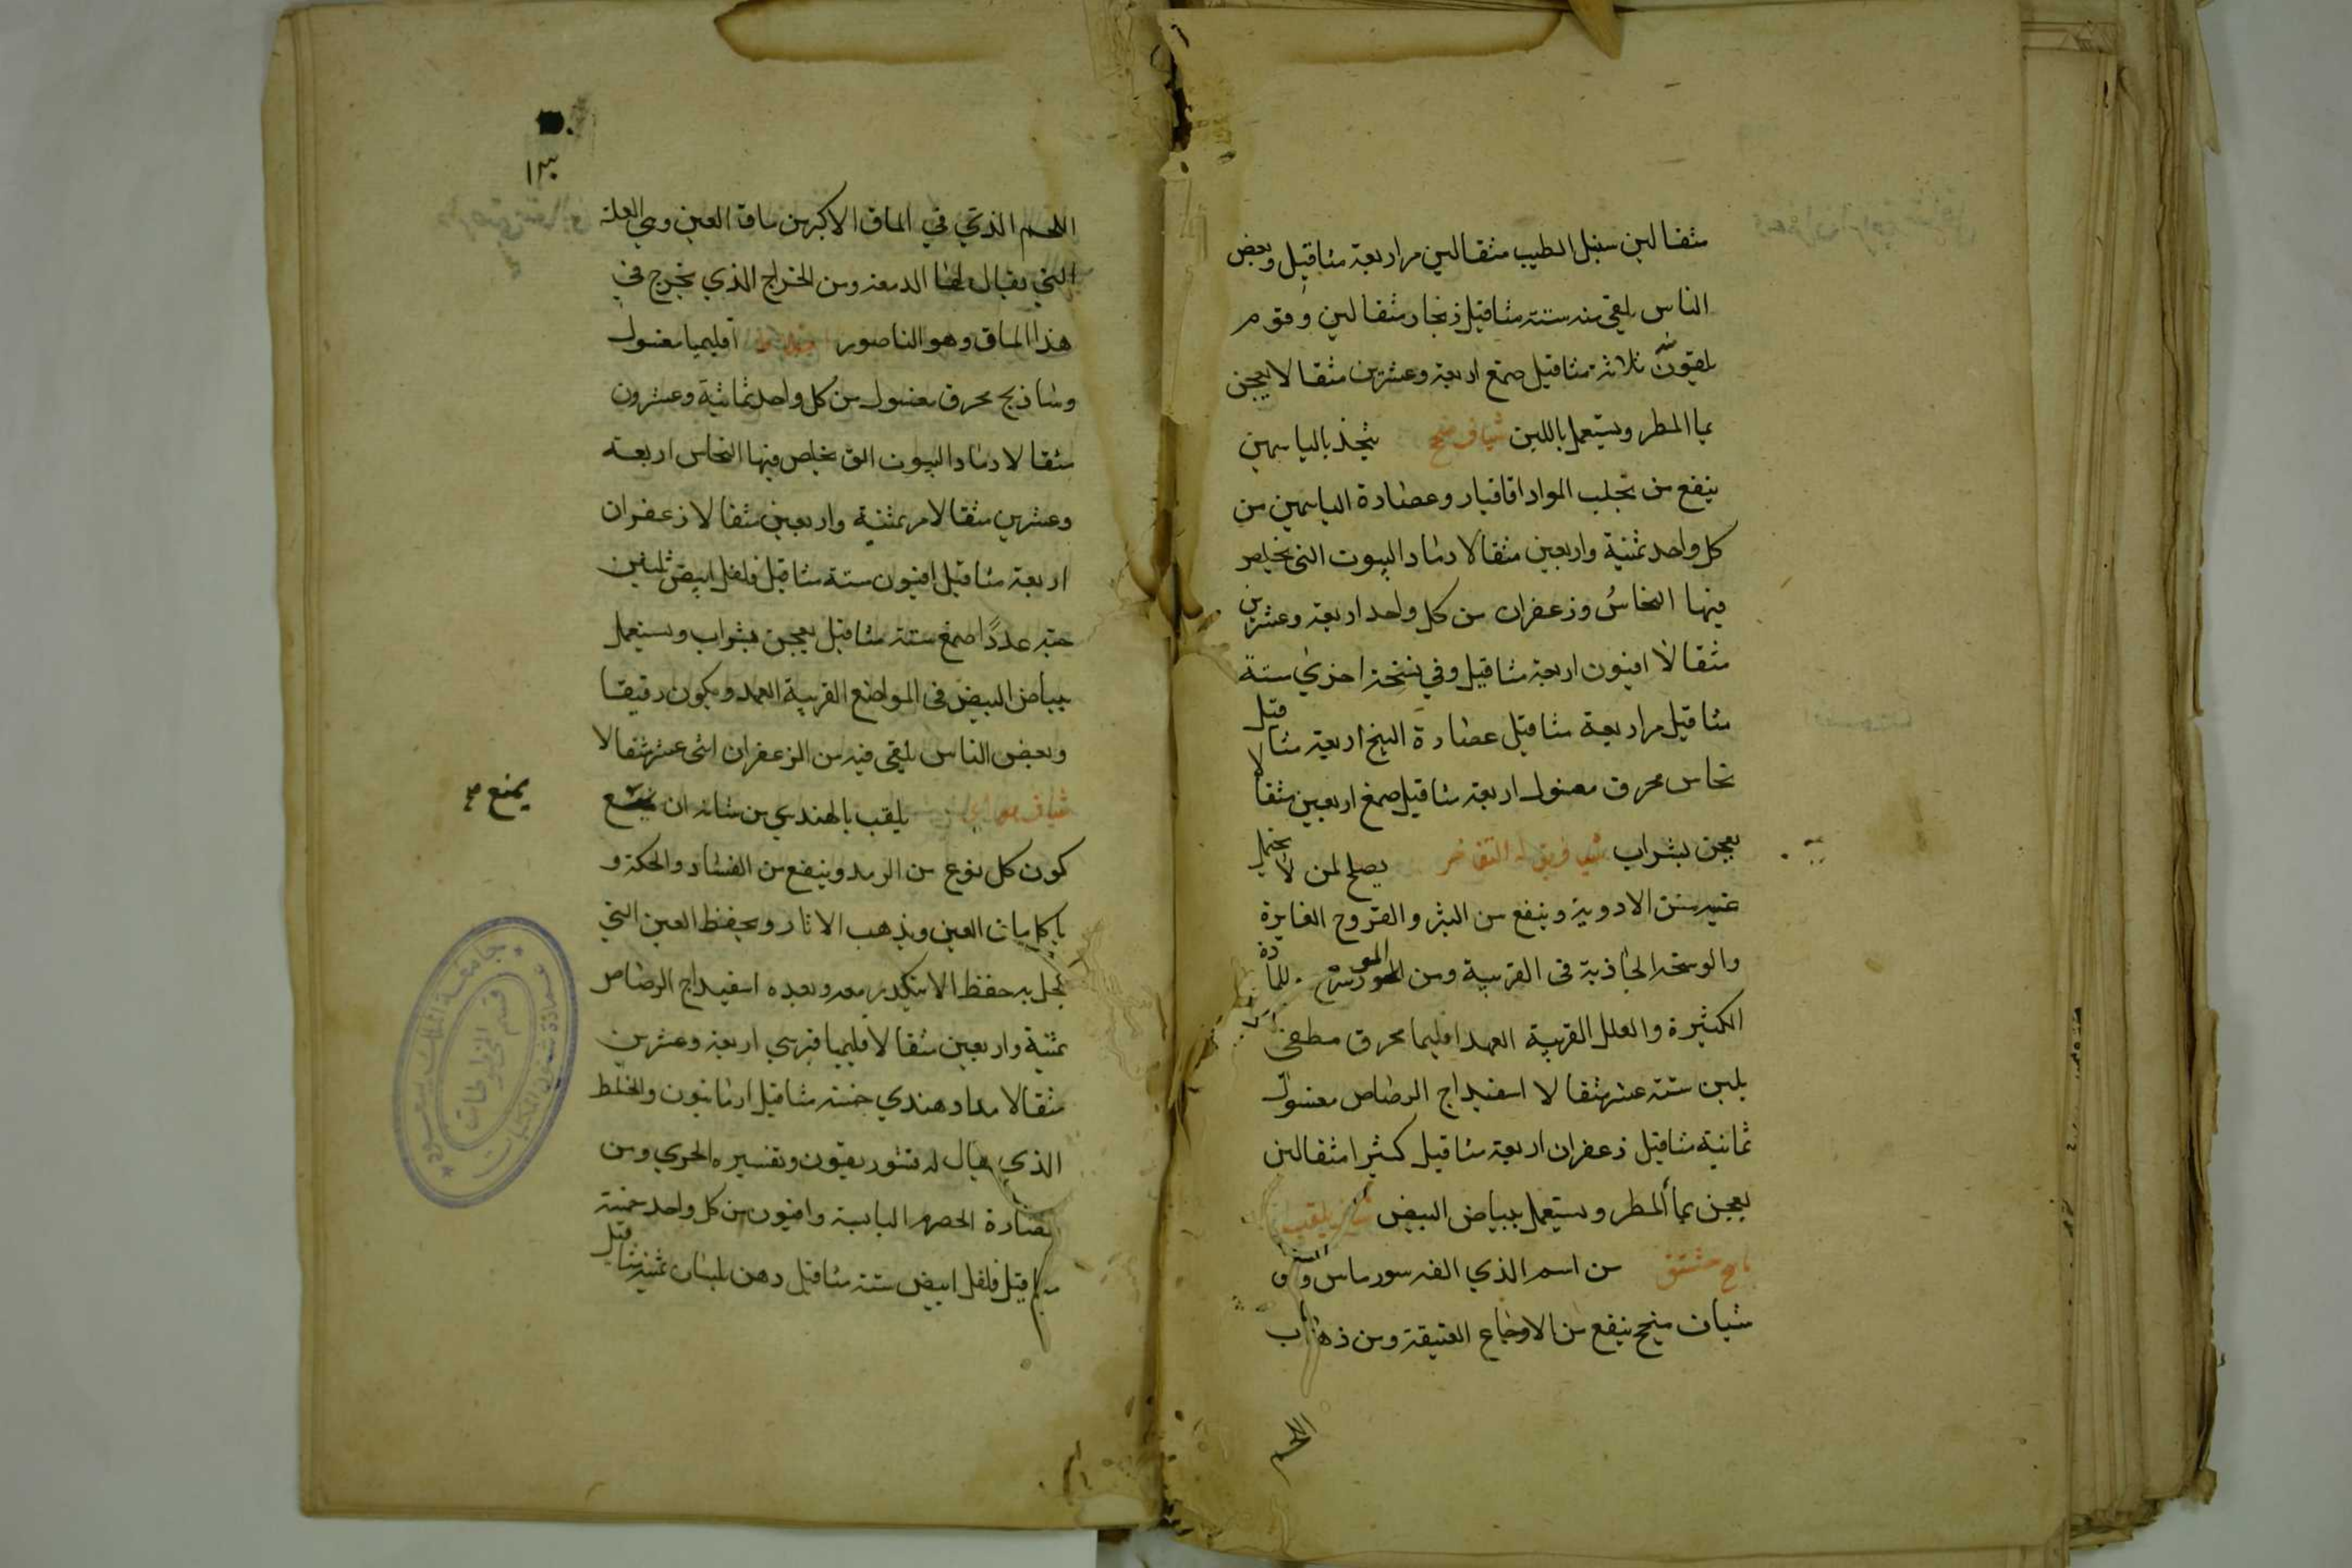 مثقالين سنبل الطيب مثقالين مر اربعة مثاقيل وبعض
الناس يلقى منه ستة مثاقيل زنجار مثقالين وقوم
يلقون منه ثلاثة مثاقيل صمغ اربعة وعشرين مثقالا يعجن
بماء المطر ويستعمل باللبن شياف منجح يتخذ بالياسمين
ينفع من تجلب المواد اقاقيا وعصارة الياسمين من
كل واحد ثمنية واربعين مثقالا رماد البيوت التي يخلص
فيها النحاسُ وزعفران من كل واحد اربعة وعشرين
مثقالا افيون اربعة مثاقيل وفي نسخة اخرى ستة
مثاقيل مر اربعة مثاقيل عصارة البنج اربعة مثاقيل
نحاس محرق مغسول اربعة مثاقيل صمغ اربعين مثقالا
يعجن بشراب يصلح لمن لا يحتمل
الادوية وينفع من البثر والقروح الغايرة
والوسخه الحاذبة في القربية ومن المادة
الكثيرة والعلل القريبة العهد اقليميا محرق مطفى
بلبن ستة عشر مثقالا اسفيداج الرصاص مغسول
ثمانية مثاقيل زعفران اربعة مثاقيل كثيرا مثقالين
يعجن بماء المطر ويستعمل ببياض البيض
من اسم الذي الفه
شياف منجح ينفع من الاوجاع العتيقة ومن ذهاب
اللحم
١٣٠
اللحم الذي في الماق الاكبر من ماق العين وهي العلة
التي يقال لها الدمعة ومن الخراج الذي يخرج في
هذا الماق وهو الناصور اقليميا مغسول
وشاذنج محرق مغسول من كل واحد ثمانية وعشرون
مثقالا رماد البيوت التي يخلص فيها النحاس اربعة
وعشرين مثقالا مر ثمنية واربعين مثقالا زعفران
اربعة مثاقيل افيون ستة مثاقيل فلفل ابيض ثلثين
حبة عددًا صمغ ستة مثاقيل يعجن بشراب ويستعمل
ببياض البيض في المواضع القريبة العهد ويكون رقيقا
وبعض الناس يلقى فيه من الزعفران اثنى عشر مثقالا
شياف يلقب بالهندي من شانه ان
يمنع صح
كون كل نوع من الرمد وينفع من الغشاء والحكة و
العين ويذهب الاثار ويحفظ العين التي
يكحل به حفظا معه وبعده اسفيداج الرصاص
ثمنية واربعين مثقالا قليميا قبرسي اربعة وعشرين
مثقالا مداد هندي خمسة مثاقيل والخلط
الذي يقال له وتفسيره الحري ومن
عصارة الحصرم اليابسة وافيون من كل واحد خمسة
مثاقيل فلفل ابيض ستة مثاقيل دهن بلسان ثمنية مثاقيل
جامعة الملك سعود
عمادة شئون المكتبات
قسم المخطوطات